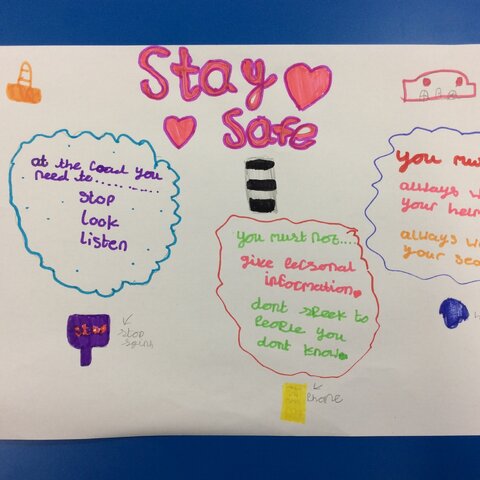 Stay
Safe
at the road you
need to.............
Stop
Look
Listen
you must not....
give personal
information
dont speek to
people you
dont know
you mus
always w
your heln
always w
your sea
stop
stop
signs
Phone